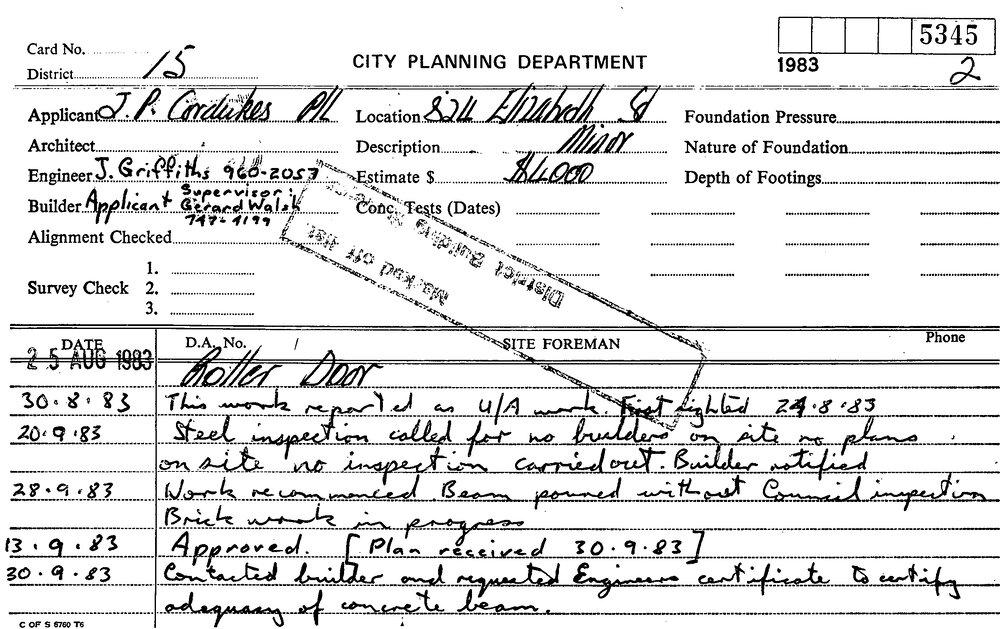 5345
Card No.
1983 2
District 15
CITY PLANNING DEPARTMENT
Applicant J. P. Cordukes P/L
Location 824 Elizabeth St
Foundation Pressure
Architect
Description Minor
Nature of Foundation
Engineer J. Griffiths 960-2053
Estimate $ $4000
Depth of Footings
Builder Applicant Supervisor: Gerard Walsh 747-4199
Conc. Tests (Dates)
Alignment Checked
Survey Check 1.
2.
3.
District Building Surveyor
Marked off list
DATE D.A. No. SITE FOREMAN Phone
25 AUG 1983 Roller Door
30.8.83 This work reported as U/A work. First sighted 24.8.83
20.9.83 Steel inspection called for no builders on site no plans
on site no inspection carried out. Builder notified
28.9.83 Work recommenced Beam poured without Council inspection
Brick work in progress
13.9.83 Approved. [Plan received 30.9.83]
30.9.83 Contacted builder and requested Engineers certificate to certify
adequacy of concrete beam.
C OF S 6760 T6